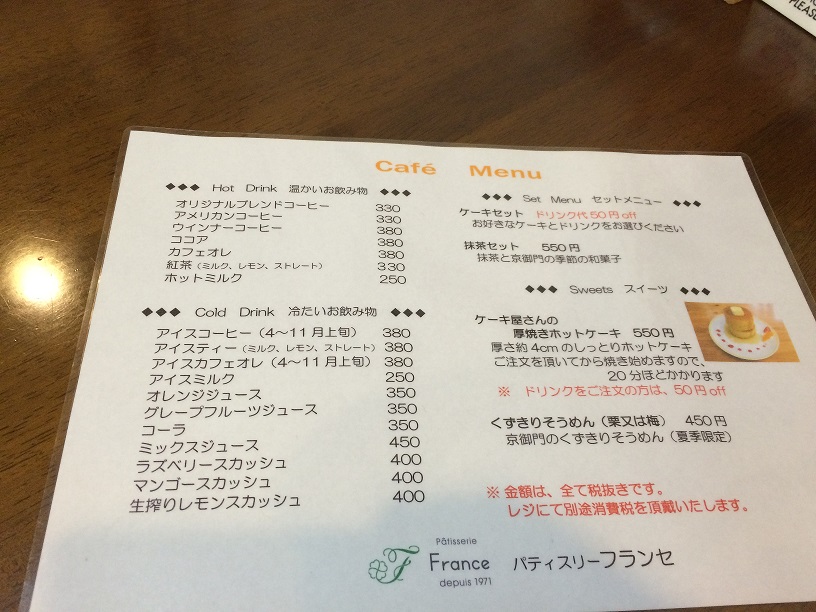 PLEASE
Café Menu
◆◆◆ Hot Drink 温かいお飲み物 ◆◆◆
オリジナルブレンドコーヒー 330
アメリカンコーヒー 330
ウインナーコーヒー 380
ココア 380
カフェオレ 380
紅茶（ミルク、レモン、ストレート） 330
ホットミルク 250
◆◆◆ Cold Drink 冷たいお飲み物 ◆◆◆
アイスコーヒー（4～11月上旬） 380
アイスティー（ミルク、レモン、ストレート） 380
アイスカフェオレ（4～11月上旬） 380
アイスミルク 250
オレンジジュース 350
グレープフルーツジュース 350
コーラ 350
ミックスジュース 450
ラズベリースカッシュ 400
マンゴースカッシュ 400
生搾りレモンスカッシュ 400
◆◆◆ Set Menu セットメニュー ◆◆◆
ケーキセット ドリンク代50円off
お好きなケーキとドリンクをお選びください
抹茶セット 550円
抹茶と京御門の季節の和菓子
◆◆◆ Sweets スイーツ ◆◆◆
ケーキ屋さんの
厚焼きホットケーキ 550円
厚さ約4cmのしっとりホットケーキ
ご注文を頂いてから焼き始めますので、
20分ほどかかります
※ ドリンクをご注文の方は、50円off
くずきりそうめん（栗又は梅） 450円
京御門のくずきりそうめん（夏季限定）
※ 金額は、全て税抜きです。
レジにて別途消費税を頂戴いたします。
Pâtisserie
France パティスリーフランセ
depuis 1971